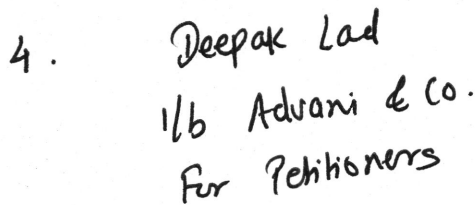 4. Deepak Lad
i/b Advani & Co.
For Petitioners